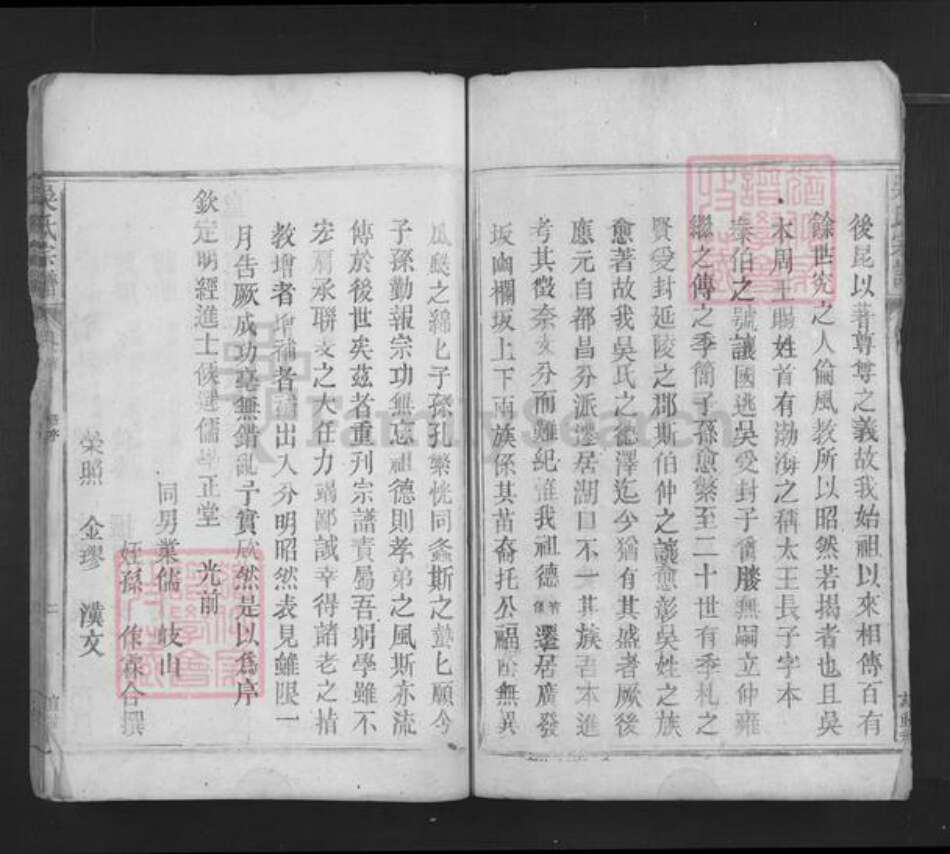 後昆以著尊尊之義故我始祖以來相傳百有
餘世究之人倫風教所以昭然若揭者也且吳
本周王賜姓首有渤海之稱太王長子字本
泰伯之號讓國逃吳受封子爵膝無嗣立仲雍
繼之傳之季簡子孫愈繁至二十世有季札之
賢受封延陵之郡斯伯仲之讓愈彰吳姓之族
愈著故我吳氏之德澤迄今猶有其盛者厥後
應元自都昌分派遷居湖口不一其族吾本進
考其徵奈支分而難紀惟我祖德 遷居廣發
坂幽欄坂上下兩族係其苗裔托公福 無異
瓜瓞之綿匕子孫孔樂恍同螽斯之蟄匕願今
子孫勤報宗功無忘祖德則孝弟之風斯亦流
傳於後世矣茲者重刊宗譜責屬吾躬學雖不
宏肩承聯支之大任力竭鄙誠幸得諸老之指
教增者增補者補出入分明昭然表見雖限一
月告厥成功毫無錯亂予實欣然是以為序
欽定明經進士候選儒學正堂 光前
同男業儒 岐山
姪孫 森合撰
榮照 金璆 漢文
吳氏宗譜
FamilySearch